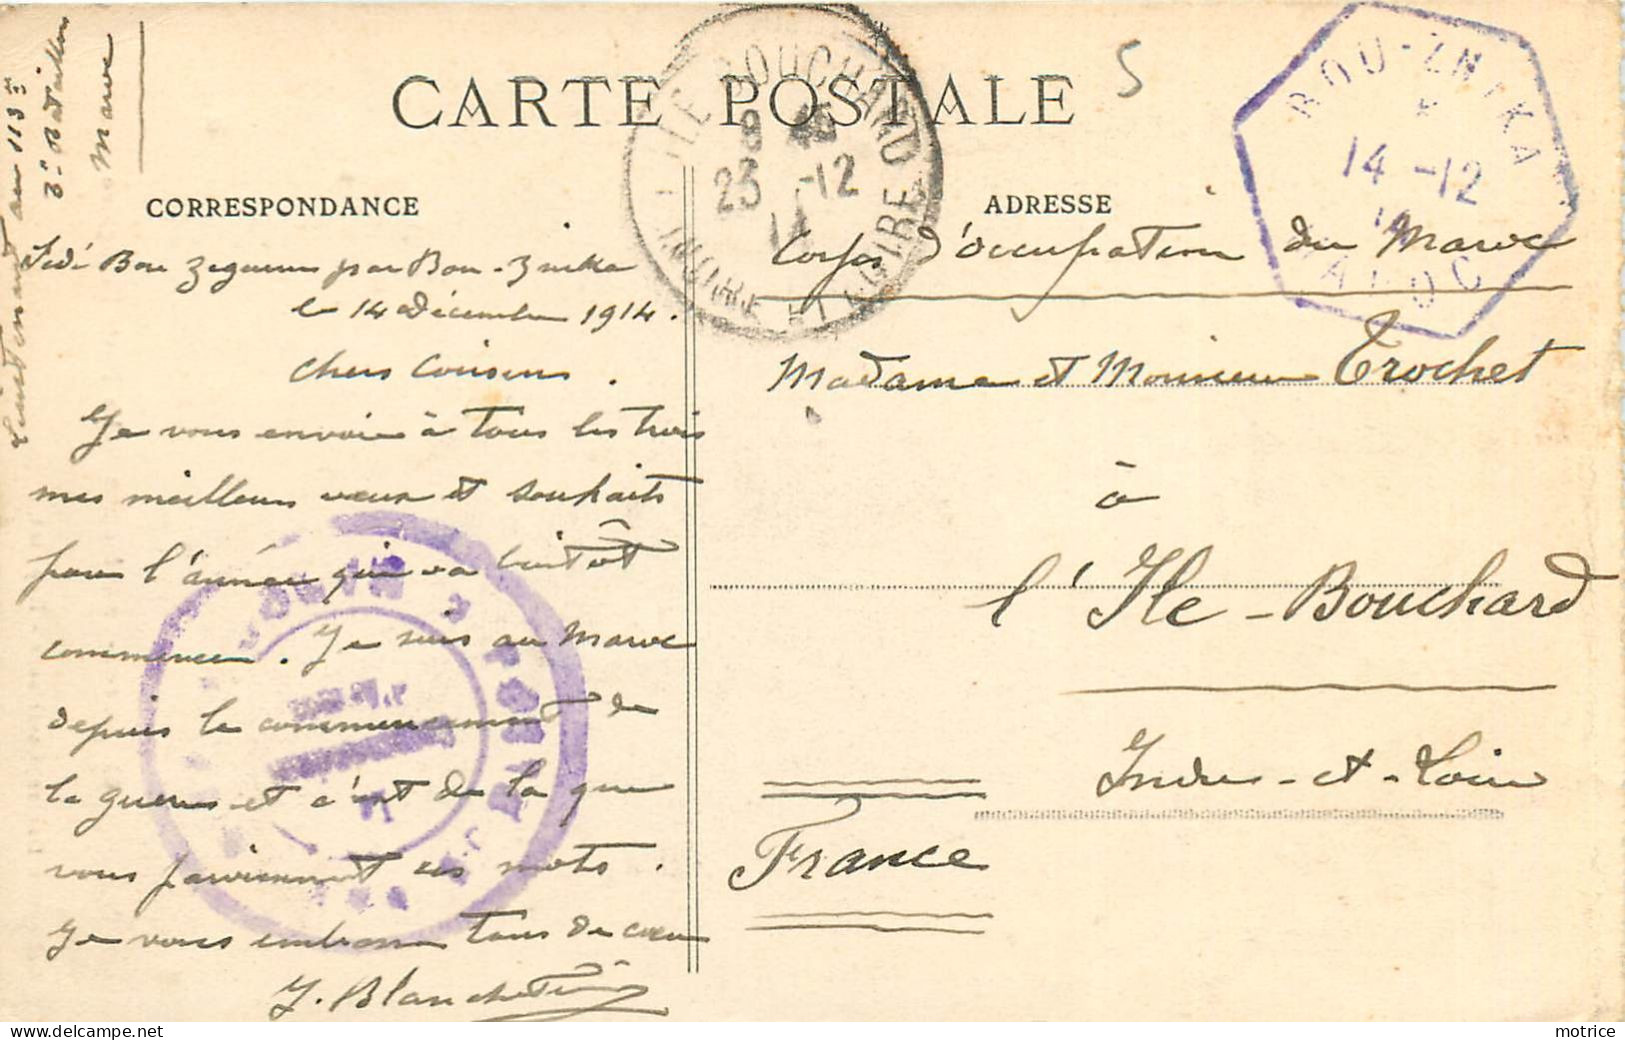 CARTE POSTALE
CORRESPONDANCE
ADRESSE
5
au 113e
3e Bataillon
Maroc
Sidi Bou Zegueur par Bou-Znika
le 14 décembre 1914.
Chers Cousins.
Je vous envoie à tous les trois
mes meilleurs vœux et souhaits
pour l'année qui va bientôt
commencer. Je suis au Maroc
depuis le commencement de
la guerre et c'est de la que
vous parviennent ces mots.
Je vous embrasse tous de cœur
J. Blanchetière
L'ILE BOUCHARD
8 45
23 -12
14
INDRE ET LOIRE
BOU-ZNIKA
*
14 -12
14
MAROC
Corps d'occupation du Maroc
Madame et Monsieur Trochet
à
l'Ile-Bouchard
Indre-et-Loire
France
motrice